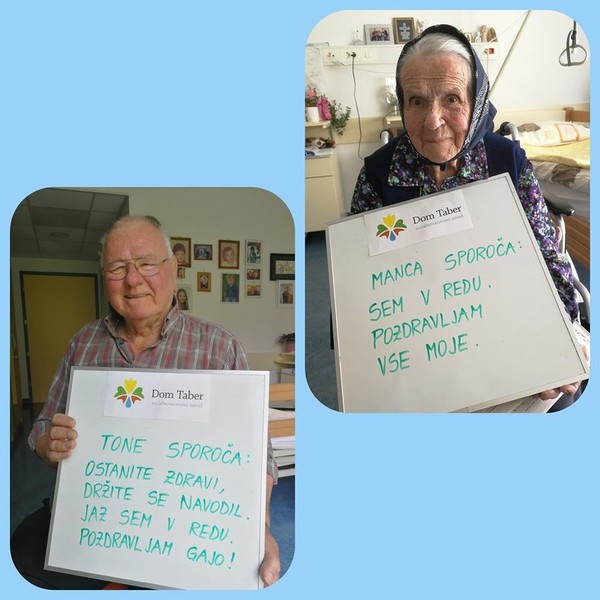 Dom Taber
TONE SPOROČA:
OSTANITE ZDRAVI,
DRŽITE SE NAVODIL.
JAZ SEM V REDU.
POZDRAVLJAM GAJO!
Dom Taber
MANCA SPOROČA:
SEM V REDU.
POZDRAVLJAM
VSE MOJE.